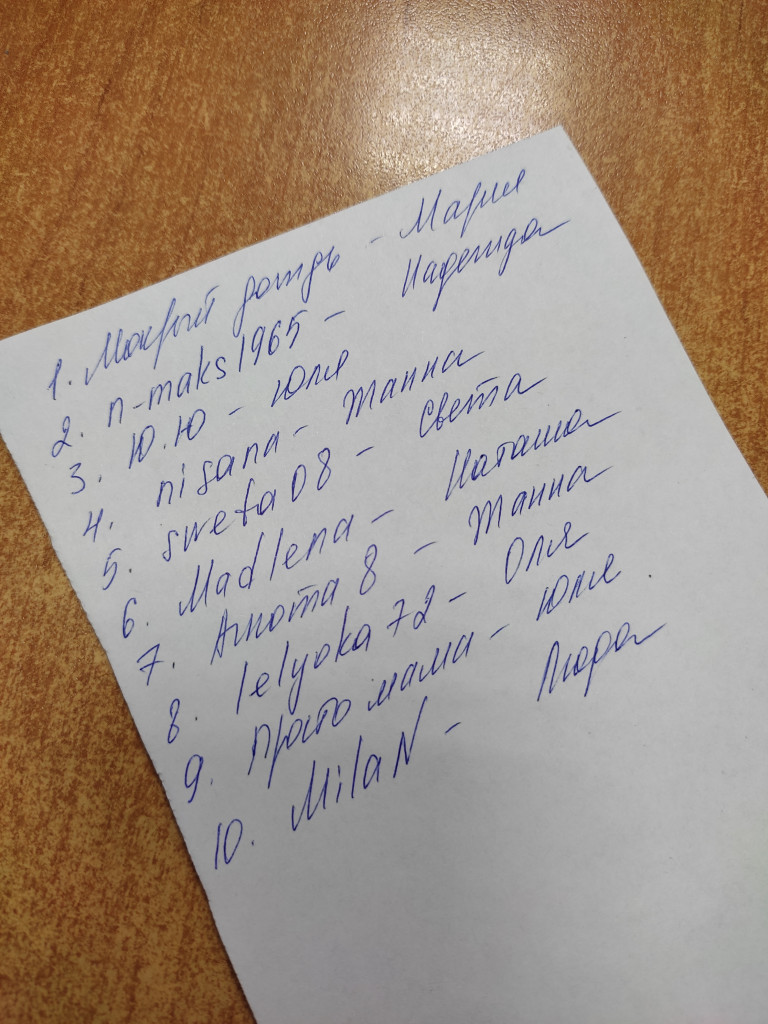 1. Мокрый дождь - Мария
2. n-maks1965 - Надежда
3. Ю.Ю - Юля
4. nisana - Жанна
5. sweta08 - Света
6. Madlena - Наташа
7. Анюта 8 - Жанна
8. lelyoka72 - Оля
9. Просто мама - Юля
10. MilaN - Люда